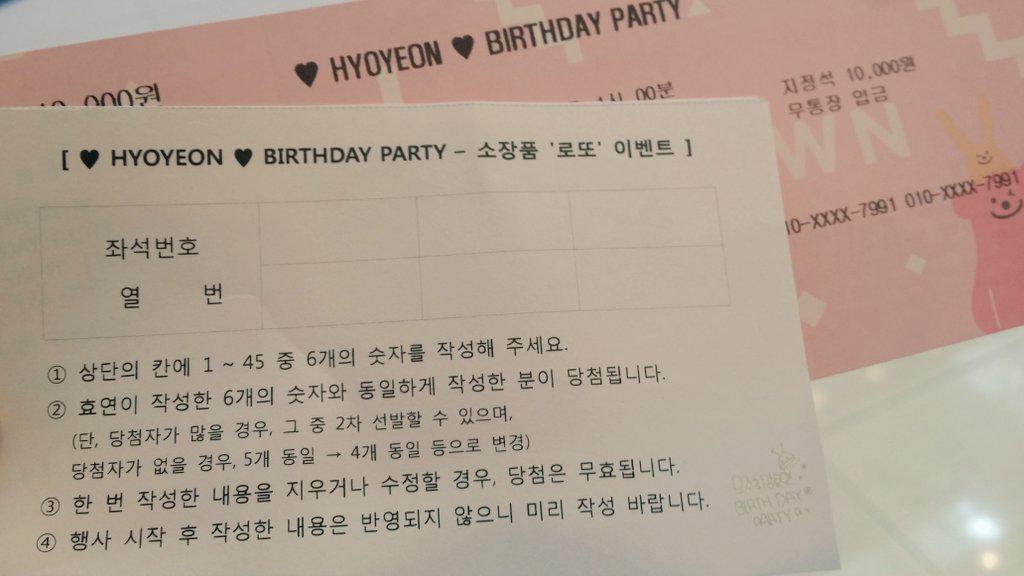 ♥ HYOYEON ♥ BIRTHDAY PARTY
10,000원
00분
지정석 10,000원
무통장 입금
WN
10-XXXX-7991 010-XXXX-7991
[ ♥ HYOYEON ♥ BIRTHDAY PARTY – 소장품 '로또' 이벤트 ]
좌석번호
열 번
① 상단의 칸에 1 ~ 45 중 6개의 숫자를 작성해 주세요.
② 효연이 작성한 6개의 숫자와 동일하게 작성한 분이 당첨됩니다.
(단, 당첨자가 많을 경우, 그 중 2차 선발할 수 있으며,
당첨자가 없을 경우, 5개 동일 → 4개 동일 등으로 변경)
③ 한 번 작성한 내용을 지우거나 수정할 경우, 당첨은 무효됩니다.
④ 행사 시작 후 작성한 내용은 반영되지 않으니 미리 작성 바랍니다.
BIRTH DAY
PARTY